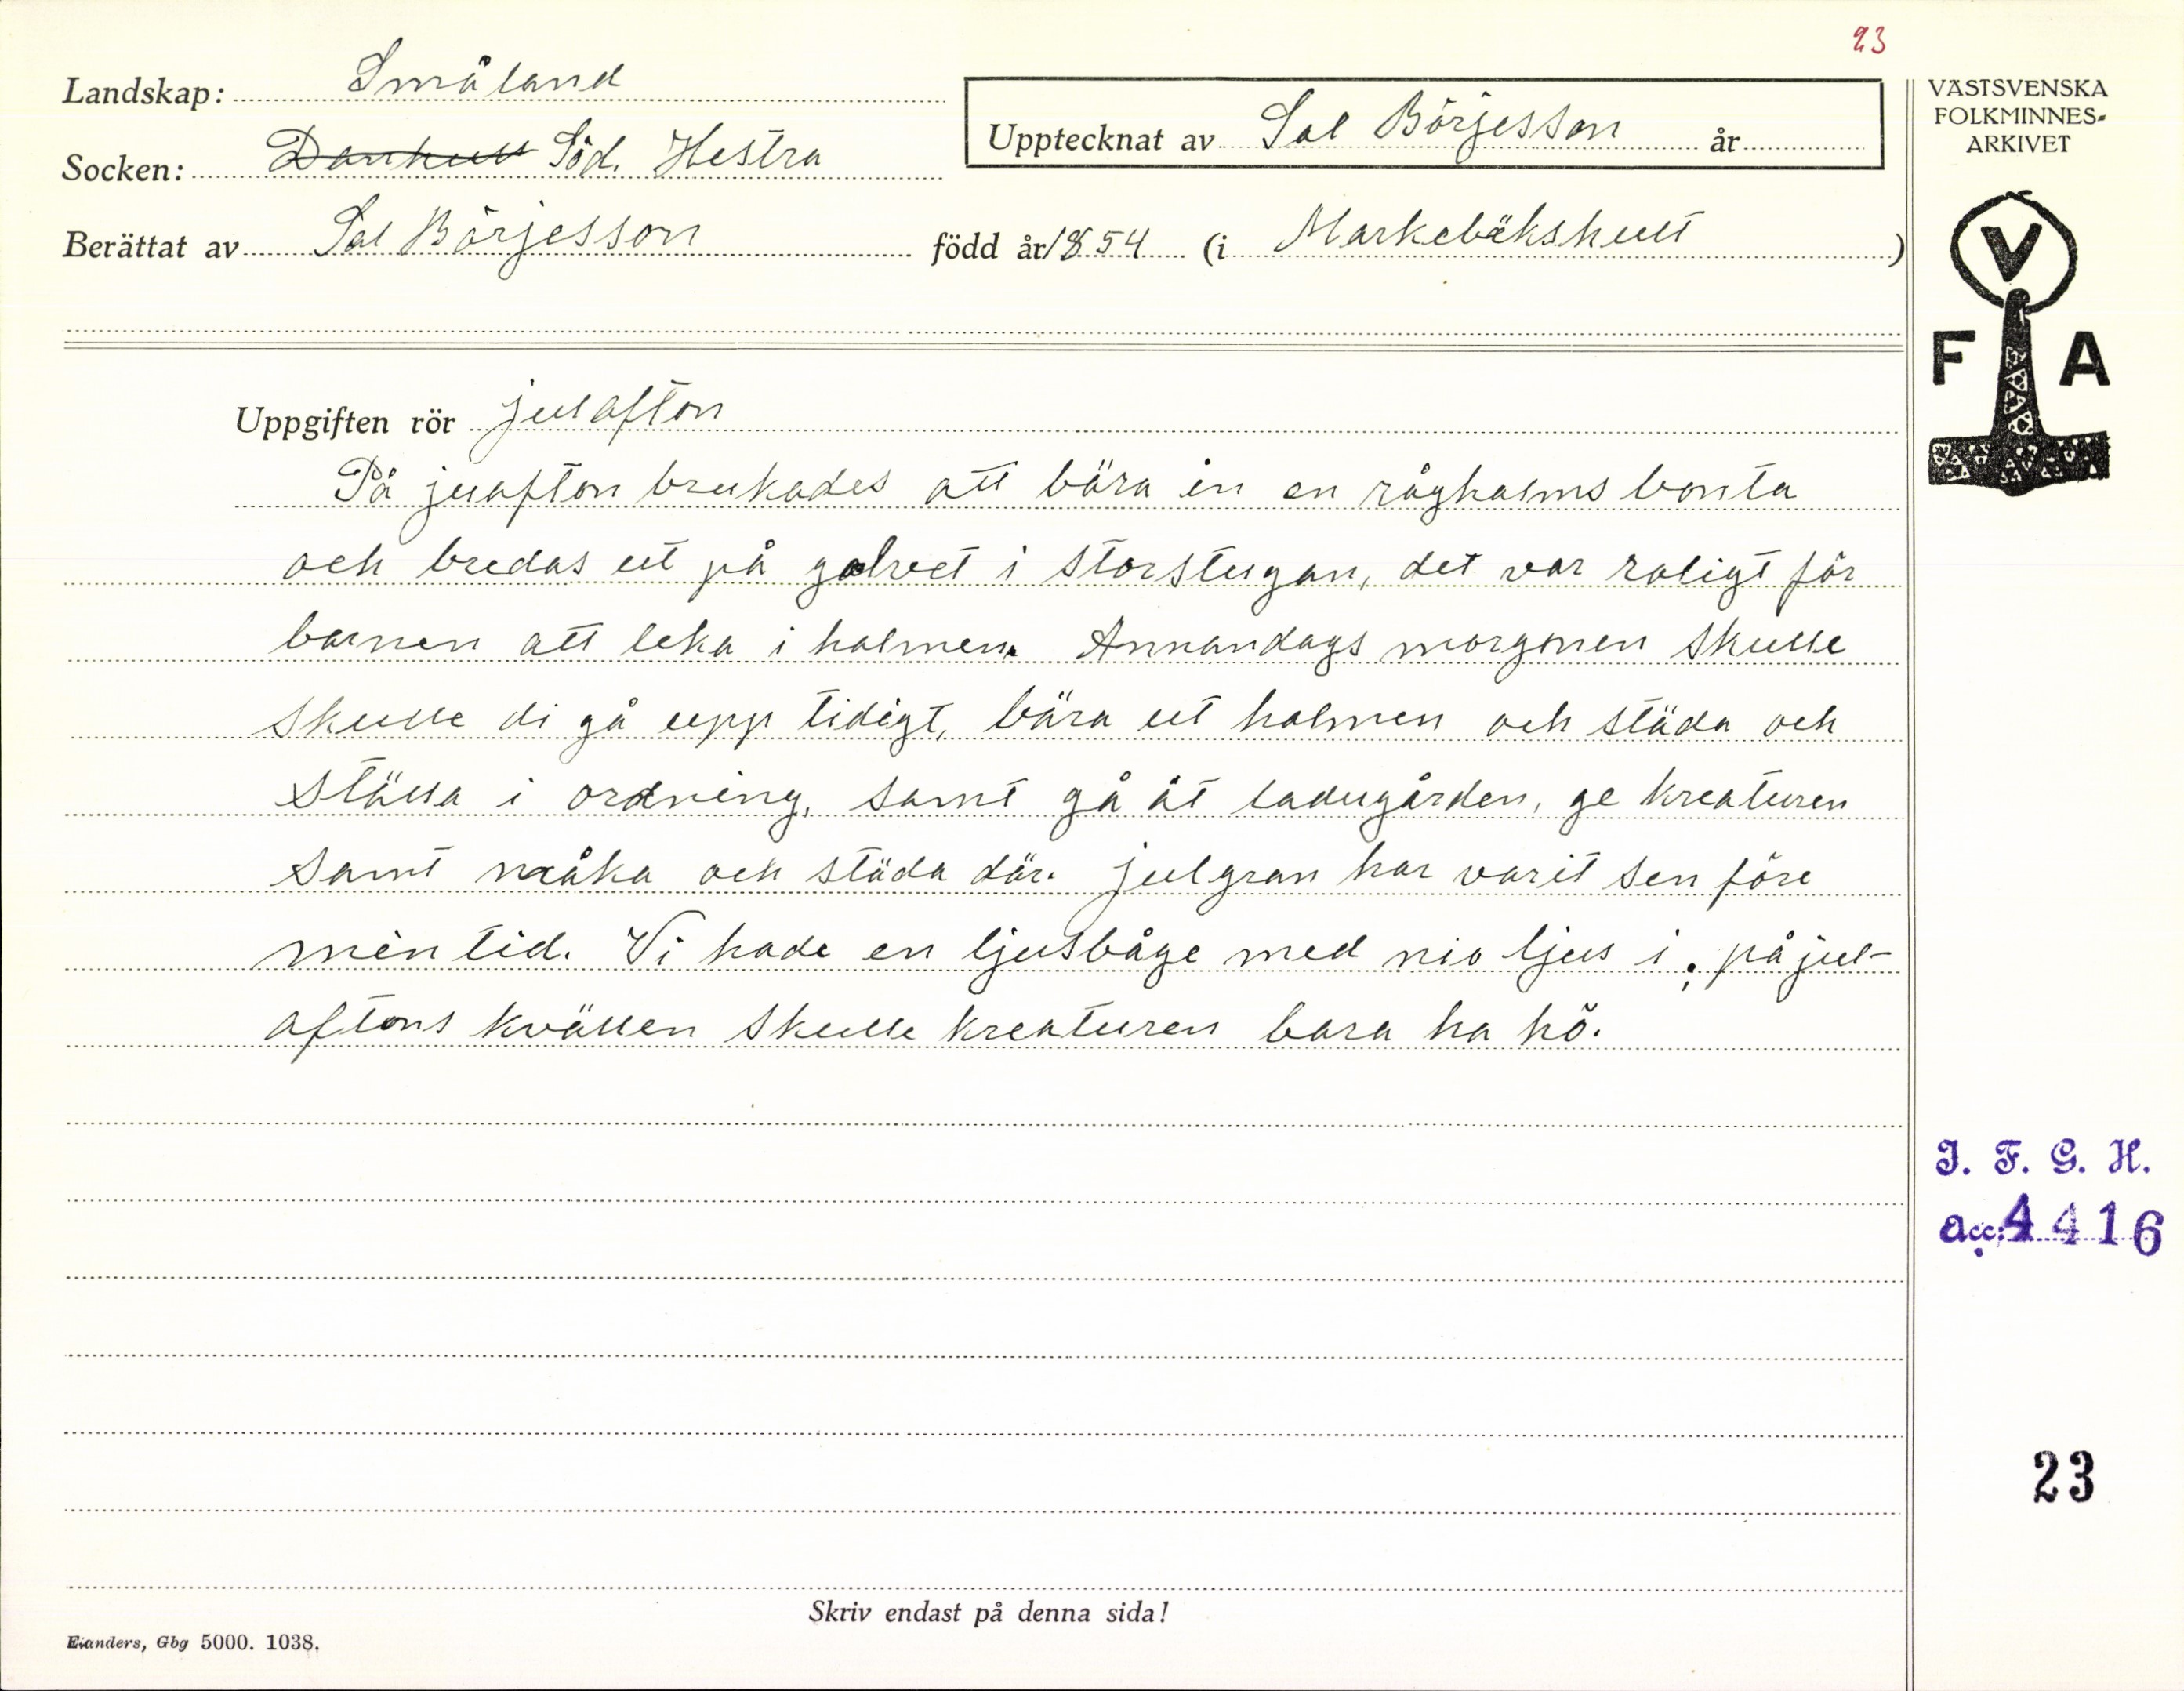 23
Landskap: Småland
Socken: Dankull Söd. Hestra
Upptecknat av Sal Börjesson år
Berättat av Sal Börjesson född år 1854 (i Markebäkshult)
VÄSTSVENSKA
FOLKMINNES-
ARKIVET
V
F A
Uppgiften rör julafton
På juafton brukades att bära in en råghalms bonta
och bredas ut på golvet i storstugan, det var roligt för
barnen att leka i halmen. Annandags morgonen skulle
skulle di gå upp tidigt, bära ut halmen och städa och
ställa i ordning, samt gå åt ladugården, ge kreaturen
samt måka och städa där. julgran har varit sen före
min tid. Vi hade en ljusbåge med nio ljus i; på jul-
aftons kvällen skulle kreaturen bara ha hö.
I. F. G. H.
acc. 4416
23
Skriv endast på denna sida!
Elanders, Gbg 5000. 1038.